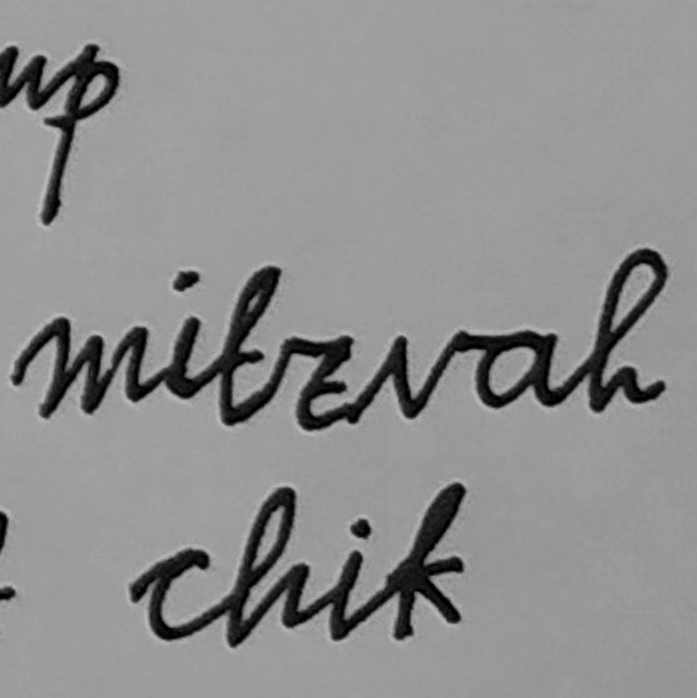 up
mitzvah
chik